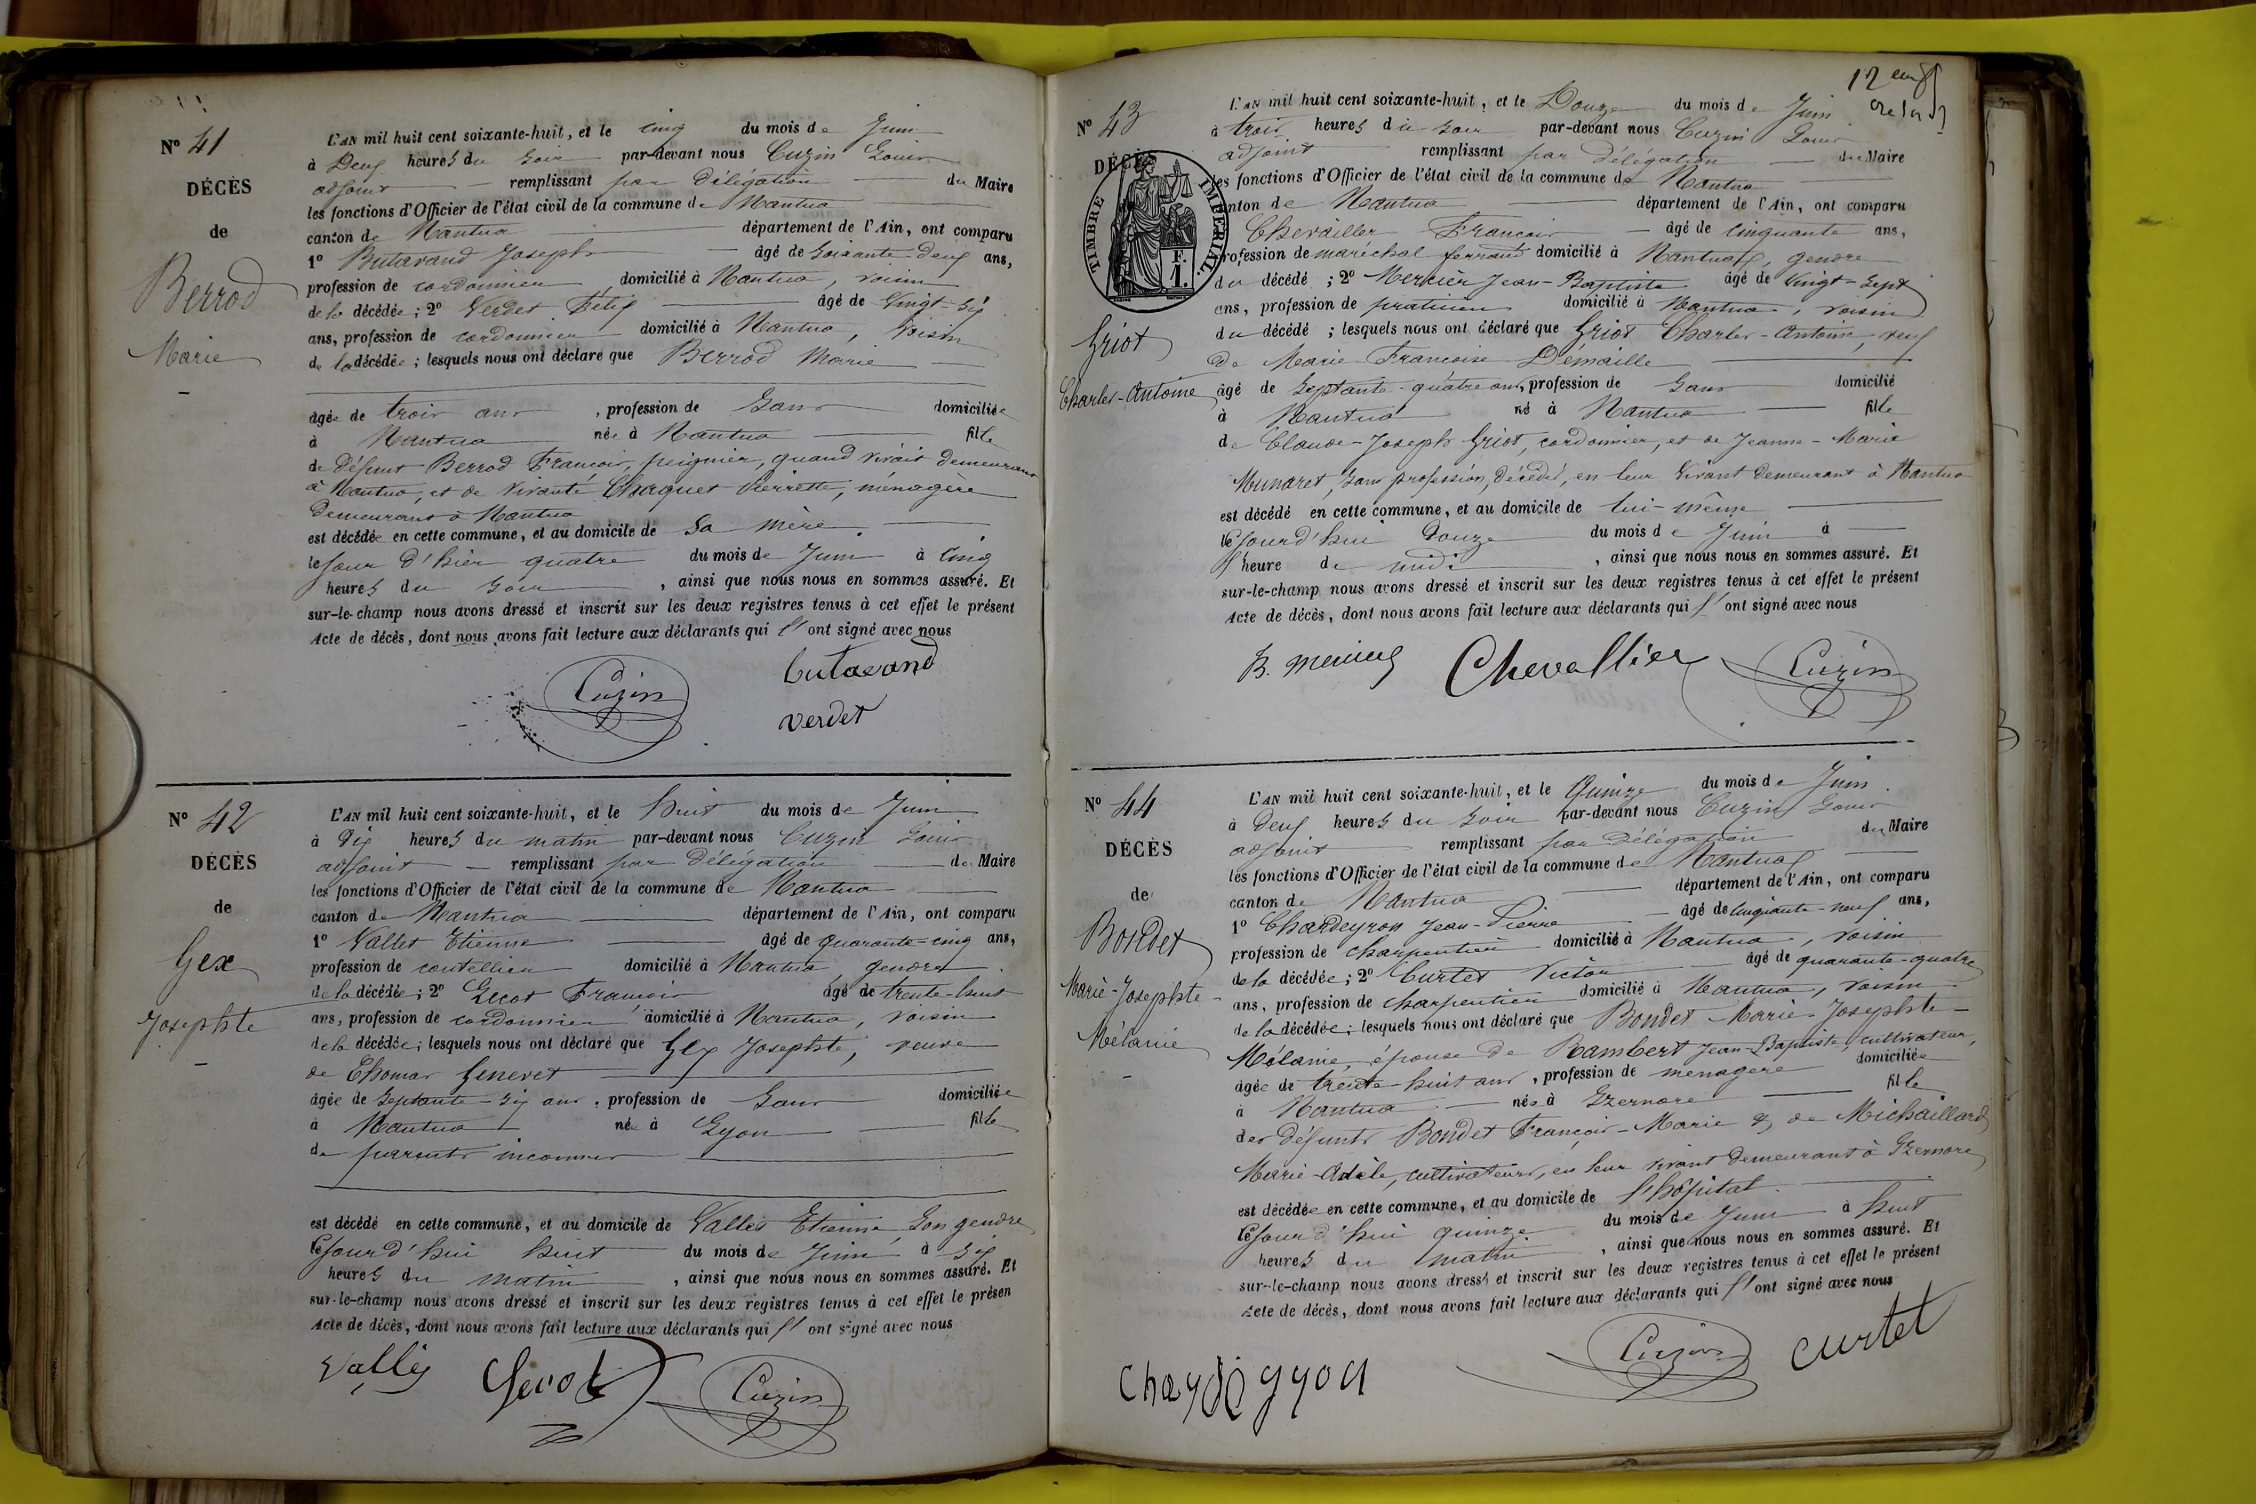 N° 41
DÉCÈS
de
Berrod
Marie
L'AN mil huit cent soixante-huit, et le cinq du mois de Juin
à Deux heures du soir par-devant nous Cuzin Louis
adjoint remplissant par Délégation du Maire
les fonctions d'Officier de l'état civil de la commune de Nantua
canton de Nantua département de l'Ain, ont comparu
1° Butavand Joseph âgé de soixante-deux ans,
profession de cordonnier domicilié à Nantua, voisin
de la décédée ; 2° Verdet Félix âgé de vingt-six
ans, profession de cordonnier domicilié à Nantua, voisin
de la décédée ; lesquels nous ont déclaré que Berrod Marie
âgée de trois ans, profession de sans domiciliée
à Nantua née à Nantua fille
de Défunt Berrod François, peignier, quand vivait demeurant
à Nantua, et de vivante Chaquet Pierrette, ménagère
demeurant à Nantua
est décédée en cette commune, et au domicile de sa mère
le jour d'hier quatre du mois de Juin à cinq
heures du soir, ainsi que nous nous en sommes assuré. Et
sur-le-champ nous avons dressé et inscrit sur les deux registres tenus à cet effet le présent
Acte de décès, dont nous avons fait lecture aux déclarants qui l' ont signé avec nous
Cuzin
butavand
verdet
N° 42
DÉCÈS
de
Gex
Josephte
L'AN mil huit cent soixante-huit, et le huit du mois de Juin
à Dix heures du matin par-devant nous Cuzin Louis
adjoint remplissant par Délégation du Maire
les fonctions d'Officier de l'état civil de la commune de Nantua
canton de Nantua département de l'Ain, ont comparu
1° Vallet Etienne âgé de quarante-cinq ans,
profession de coutellier domicilié à Nantua, gendre
de la décédée ; 2° François âgé de trente-huit
ans, profession de cordonnier domicilié à Nantua, voisin
de la décédée ; lesquels nous ont déclaré que Gex Josephte, veuve
de Thomas Genevet
âgée de septante-six ans, profession de sans domiciliée
à Nantua née à Lyon fille
de parents inconnus
est décédé en cette commune, et au domicile de Vallet Etienne, son gendre
cejourd'hui huit du mois de Juin à six
heures du matin, ainsi que nous nous en sommes assuré. Et
sur-le-champ nous avons dressé et inscrit sur les deux registres tenus à cet effet le présen
Acte de décès, dont nous avons fait lecture aux déclarants qui l' ont signé avec nous
Cuzin
12
N° 43
DÉCÈS
TIMBRE IMPÉRIAL.
F.
1.
Griot
Charles-Antoine
L'AN mil huit cent soixante-huit, et le Douze du mois de Juin
à trois heures du soir par-devant nous Cuzin Louis
adjoint remplissant par Délégation du Maire
les fonctions d'Officier de l'état civil de la commune de Nantua
canton de Nantua département de l'Ain, ont comparu
Chevallier François âgé de cinquante ans,
profession de maréchal ferrant domicilié à Nantua, gendre
du décédé ; 2° Mercier Jean-Baptiste âgé de vingt-sept
ans, profession de praticien domicilié à Nantua, voisin
du décédé ; lesquels nous ont déclaré que Griot Charles-Antoine, veuf
de Marie Françoise Démaille
âgé de septante-quatre ans, profession de sans domicilié
à Nantua né à Nantua fils
de Claude-Joseph Griot, cordonnier, et de Jeanne-Marie
Munaret, sans profession, décédés, en leur vivant demeurant à Nantua
est décédé en cette commune, et au domicile de lui-même
cejourd'hui douze du mois de Juin à
l'heure de midi, ainsi que nous nous en sommes assuré. Et
sur-le-champ nous avons dressé et inscrit sur les deux registres tenus à cet effet le présent
Acte de décès, dont nous avons fait lecture aux déclarants qui l' ont signé avec nous
Chevallier
Cuzin
N° 44
DÉCÈS
de
Bondet
Marie-Josephte-
Mélanie
L'AN mil huit cent soixante-huit, et le Quinze du mois de Juin
à Deux heures du soir par-devant nous Cuzin Louis
adjoint remplissant par Délégation du Maire
les fonctions d'Officier de l'état civil de la commune de Nantua
canton de Nantua département de l'Ain, ont comparu
1° Chardeyron Jean-Pierre âgé de cinquante-neuf ans,
profession de charpentier domicilié à Nantua, voisin
de la décédée ; 2° Curtet Victor âgé de quarante-quatre
ans, profession de charpentier domicilié à Nantua, voisin
de la décédée ; lesquels nous ont déclaré que Bondet Marie-Josephte-
Mélanie, épouse de Rambert Jean-Baptiste, cultivateur,
âgée de trente-huit ans, profession de ménagère domiciliée
à Nantua née à Izernore fille
des défunts Bondet François-Marie & de Michaillard
Marie-Adèle, cultivateurs, en leur vivant demeurant à Izernore
est décédée en cette commune, et au domicile de l'hôpital
cejourd'hui quinze du mois de Juin à huit
heures du matin, ainsi que nous nous en sommes assuré. Et
sur-le-champ nous avons dressé et inscrit sur les deux registres tenus à cet effet le présent
Acte de décès, dont nous avons fait lecture aux déclarants qui l' ont signé avec nous
Cuzin
curtet